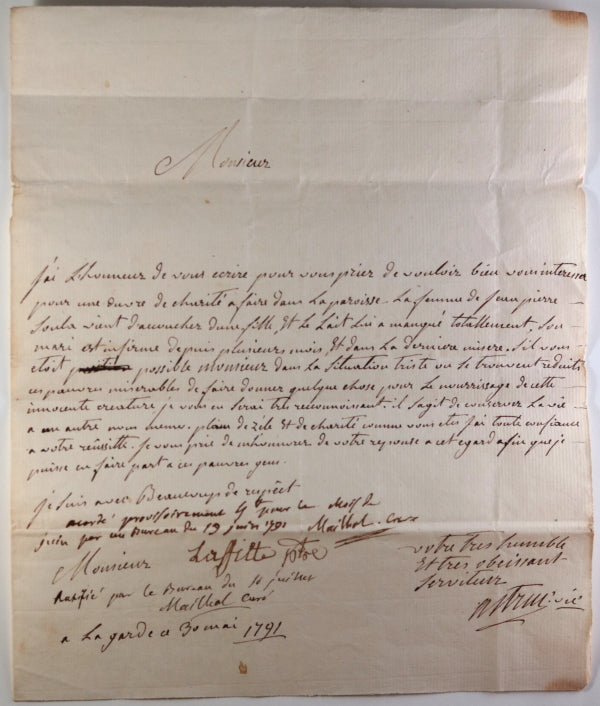 Monsieur
j'ai Lhonneur de vous ecrire pour vous prier de vouloir bien vous interesser
pour une œuvre de charité a faire dans La paroisse. La femme de jean pierre
Soula vient d'acoucher d'une fille, Et le Lait Lui a manqué totallement. Son
mari est infirme depuis plusieurs mois, Et dans La derniere misere. S'il vous
etoit possible Monsieur dans La Situation triste ou se trouvent reduits
ces pauvres miserables de faire donner quelque chose pour Le nourrissage de cette
innocente creature je vous en serai tres reconnoissant. il s'agit de conserver La vie
a un autre nous meme. plein de zele Et de charité comme vous etes j'ai toute confiance
a votre réussitte. Je vous prie de m'honnorer de votre reponse a cet egard afin que je
puisse en faire part a ces pauvres gens.
je suis avec Beaucoup de respect
acordé provisoirement 4# pour le Mois de
juin par un Bureau du 19 juin 1791 Mailhol Curé
Monsieur Laffitte ptre
votre tres humble
Et tres obeissant
Serviteur
Ratifié par le Bureau du 11 juillet
Mailhol curé
vic
a La garde ce 30 mai 1791